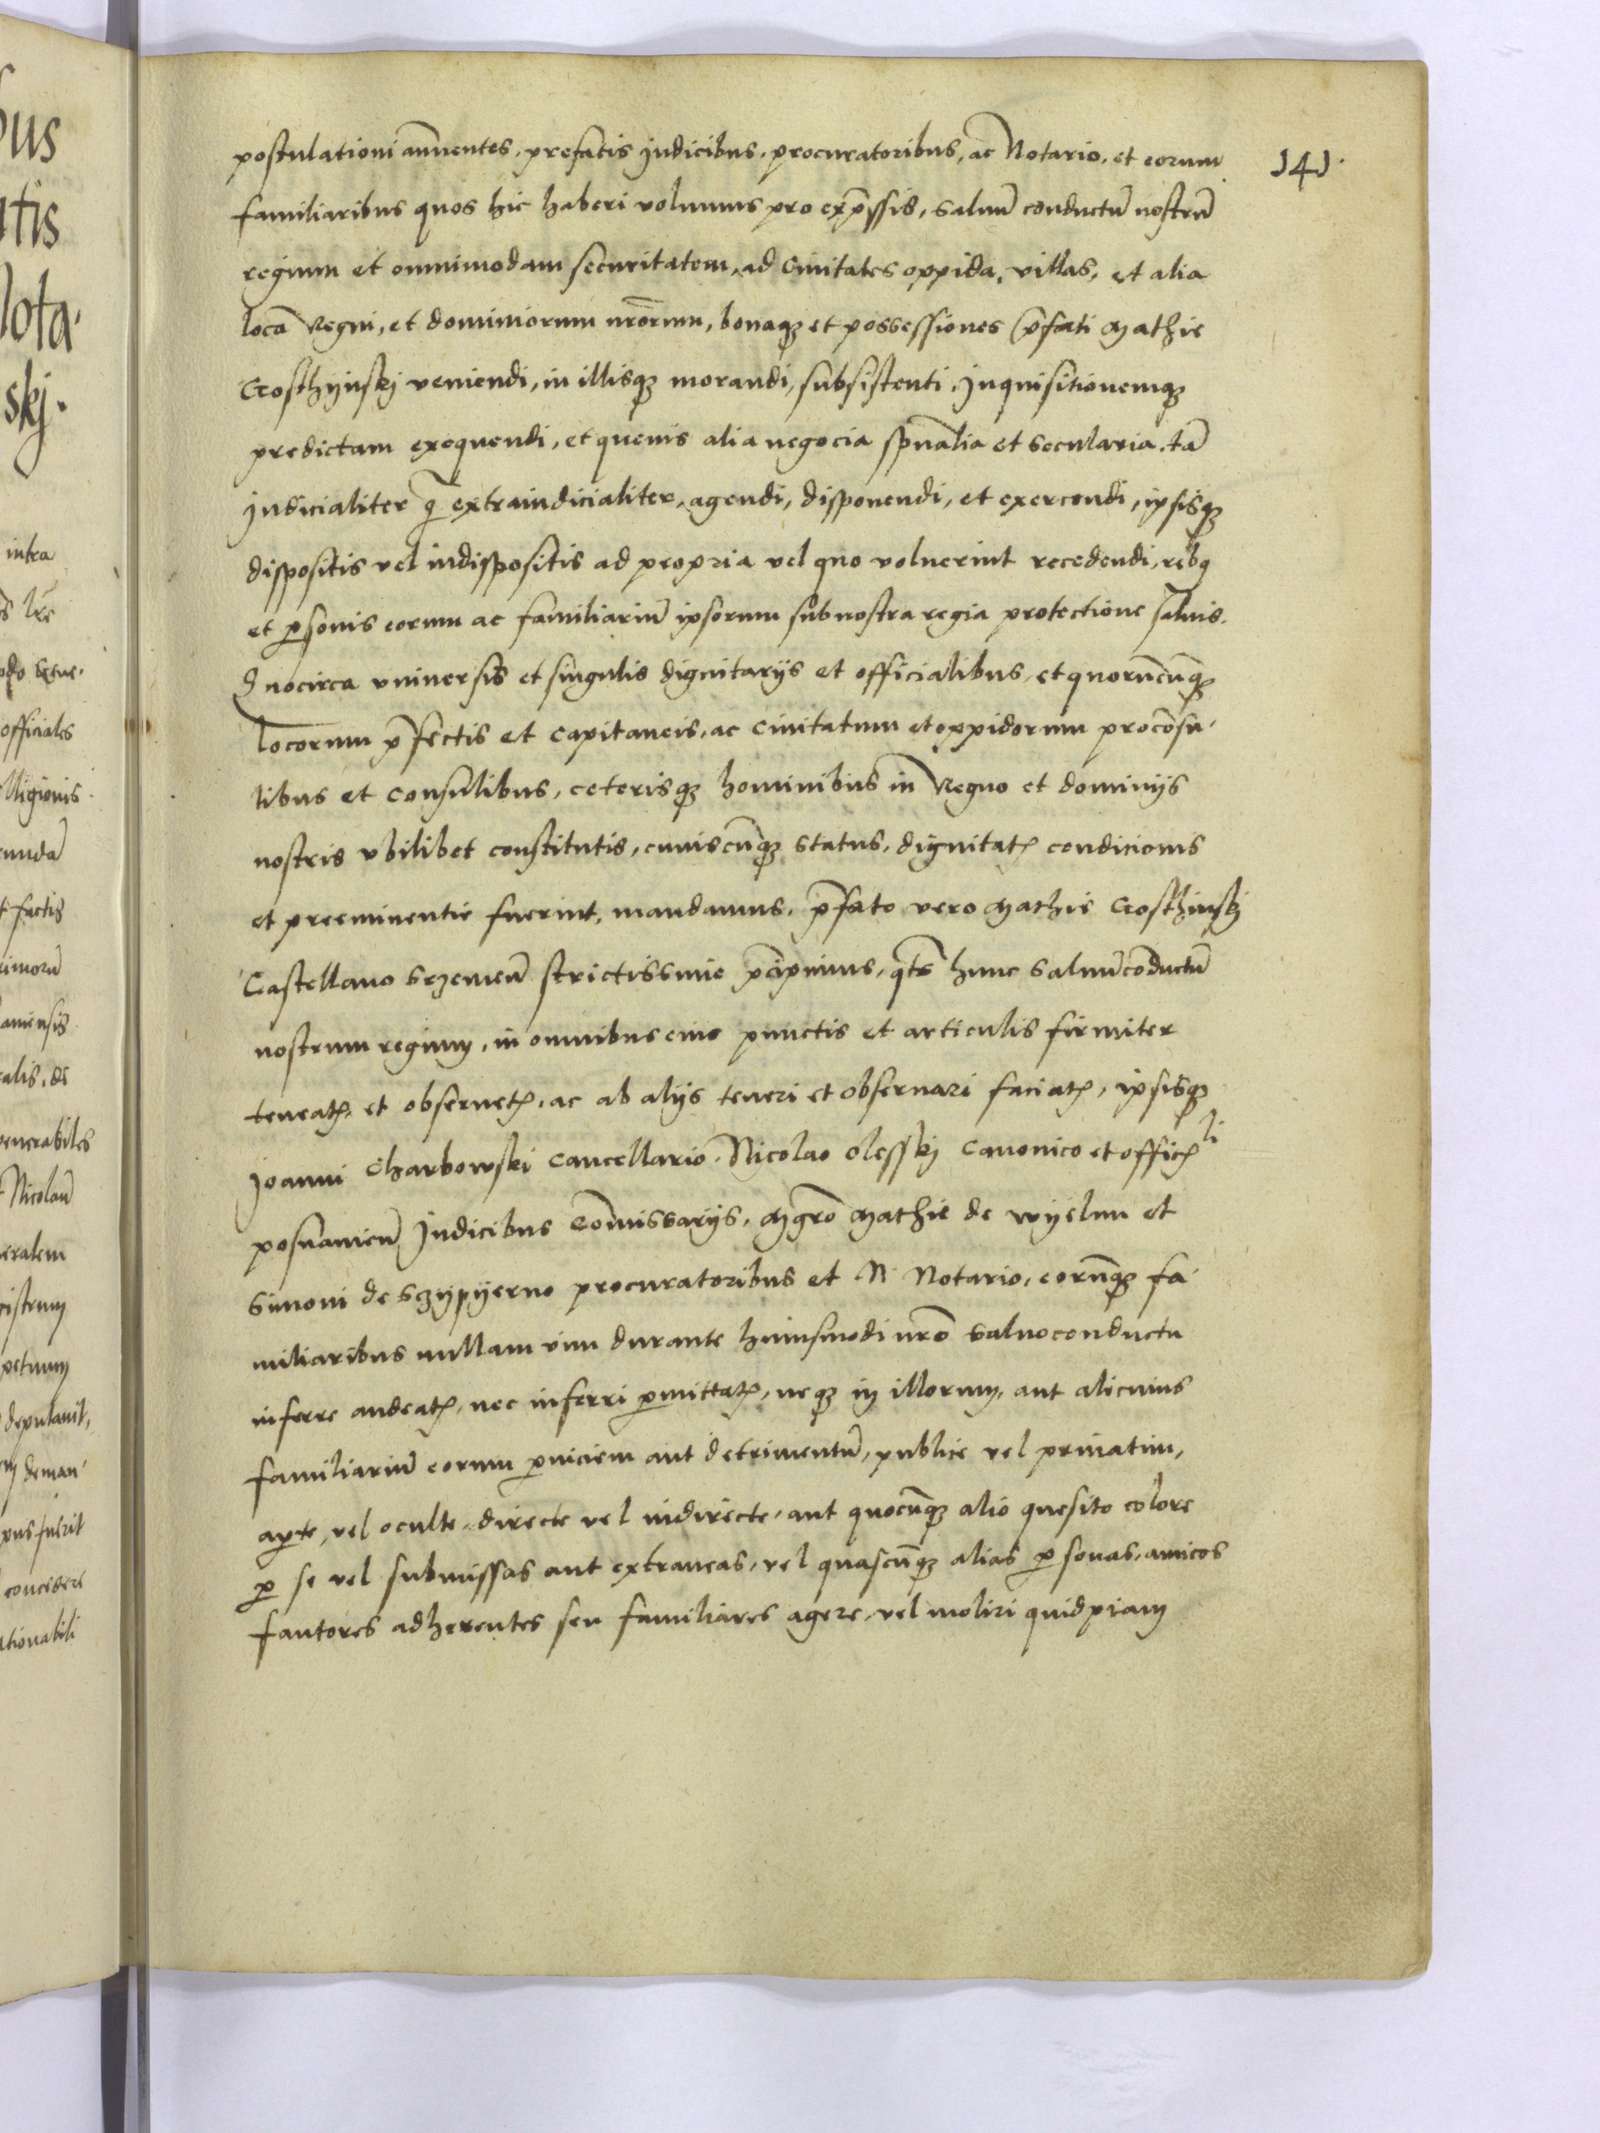 postulationi annuentes, prefatis Judicibus, procuratoribus, ac Notario, et eorum 141.
familiaribus quos hic haberi volumus pro exp̄ssis, saluū conductū nostrū
regium et omnimodam securitatem, ad Ciuitates oppida, villas, et alia
loca Regni, et dominiorum nr̄orum, bonaqȝ et possessiones p̄fati Mathie
Crosthyinskj veniendi, in illisqȝ morandi, subsistenti, Inquisitionemqȝ
predictam exequendi, et queuis alia negocia sp̄ualia et secularia, tā
Judicialiter q̄ extraiudicialiter, agendi, disponendi, et exercendi, ipsisqȝ
dispositis vel indispositis ad propria vel quo voluerint recedendi, rebȝ
et ꝑsonis eorum ac familiariū ipsorum sub nostra regia protectione saluis.
Quocirca vniuersis et singulis dignitarijs et officialibus, et quorūcūqȝ
locorum p̄fectis et Capitaneis, ac Ciuitatum et oppidorum procōsu-
libus et Consulibus, ceterisqȝ hominibus in Regno et dominijs
nostris vbilibet constitutis, cuiuscūqȝ status, dignitatꝭ condicionis
et preeminentie fuerint, mandamus, p̄fato vero Mathie Crosthinskj
Castellano Szremeñ strictissime p̄cipimus, q̄ts hunc saluūcōductū
nostrum regium, in omnibus eius punctis et articulis firmiter
teneatꝭ et obseruetꝭ, ac ab alijs teneri et obseruari faciatꝭ, ipsisqȝ
Joanni Charbowski Cancellario, Nicolao Olesskj Canonico et officꝭli
posnanieñ Judicibus Cōmissarijs, Mgr̄o Mathie de Wyelun et
Simoni de Szypyerno procuratoribus et N Notario, eorūqȝ fa-
miliaribus nullam vim durante huiusmodi nr̄o saluoconductu
inferre audeatꝭ, nec inferri ꝑmittatꝭ, neqȝ in illorum, aut alicuius
familiariū eorum ꝑniciem aut detrimentū, publice vel priuatim,
aꝑte, vel oculte, directe vel indirecte, aut quocūqȝ alio quesito colore
ꝑ se vel submissas aut extraneas, vel quascūqȝ alias ꝑsonas, amicos
fautores adherentes seu familiares agere, vel moliri quidpiam